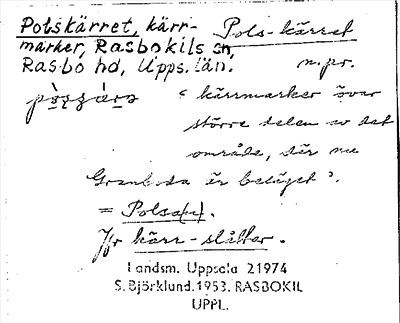 Polskärret, kärr-
marker, Rasbokils sn,
Rasbo hd, Upps. län.
Pols-kärret
n.pr.
‘kärrmarker över
större delen av det
område, där nu
Granboda är beläget’.
= Polsa(r).
Jfr kärr-slåtter.
Landsm. Uppsala 21974
S. Björklund. 1953. RASBOKIL
UPPL.